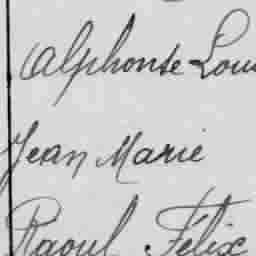 Alphonse Lou
Jean Marie
Raoul Félix